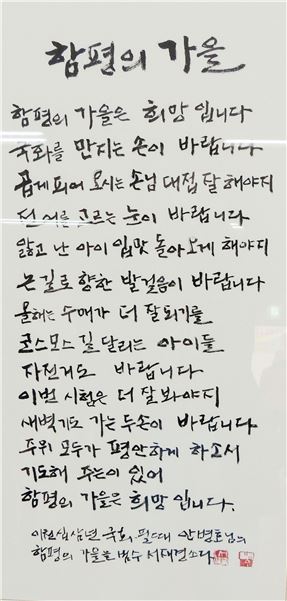 함평의 가을
함평의 가을은 희망 입니다
국화를 만지는 손이 바랍니다
곱게 피어 오시는 손님 대접 잘 해야지
전어를 고르는 눈이 바랍니다
앓고 난 아이 입맛 돌아오게 해야지
논길로 향한 발걸음이 바랍니다
올해는 수매가 더 잘되기를
코스모스 길 달리는 아이들
자전거도 바랍니다
이번 시험은 더 잘 봐야지
새벽기도 가는 두손이 바랍니다
주위 모두가 평안하게 하소서
기도해 주는이 있어
함평의 가을은 희망 입니다.
이천십삼년 국화 필때 안병호님의
함평의 가을을 범수 서대경 쓰다